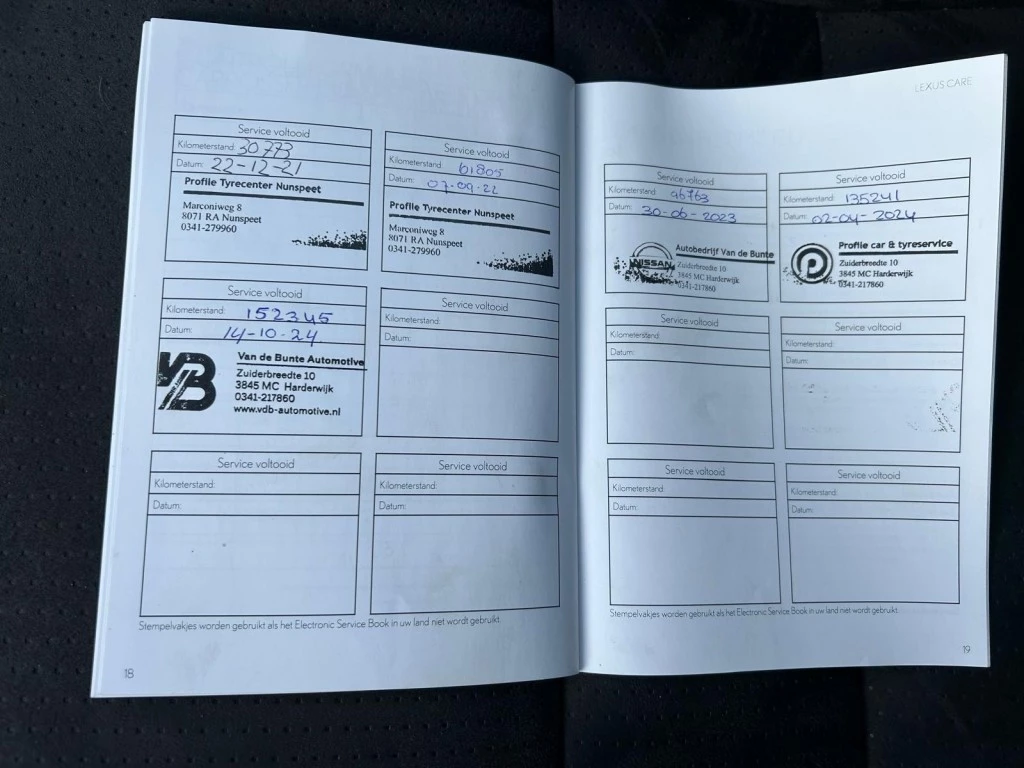 Service voltooid
Kilometerstand: 30773
Datum: 22-12-21
Profile Tyrecenter Nunspeet
Marconiweg 8
8071 RA Nunspeet
0341-279960
Service voltooid
Kilometerstand: 61805
Datum: 07-09-22
Profile Tyrecenter Nunspeet
Marconiweg 8
8071 RA Nunspeet
0341-279960
Service voltooid
Kilometerstand: 152345
Datum: 14-10-24
VB
Van de Bunte Automotive
Zuiderbreedte 10
3845 MC Harderwijk
0341-217860
www.vdb-automotive.nl
Service voltooid
Kilometerstand:
Datum:
Service voltooid
Kilometerstand:
Datum:
Service voltooid
Kilometerstand:
Datum:
Stempelvakjes worden gebruikt als het Electronic Service Book in uw land niet wordt gebruikt.
18
LEXUS CARE
Service voltooid
Kilometerstand: 96763
Datum: 30-06-2023
NISSAN
Autobedrijf Van de Bunte
Zuiderbreedte 10
3845 MC Harderwijk
0341-217860
Service voltooid
Kilometerstand: 135241
Datum: 02-04-2024
P
Profile car & tyreservice
Zuiderbreedte 10
3845 MC Harderwijk
0341-217860
Service voltooid
Kilometerstand:
Datum:
Service voltooid
Kilometerstand:
Datum:
Service voltooid
Kilometerstand:
Datum:
Service voltooid
Kilometerstand:
Datum:
Stempelvakjes worden gebruikt als het Electronic Service Book in uw land niet wordt gebruikt.
19